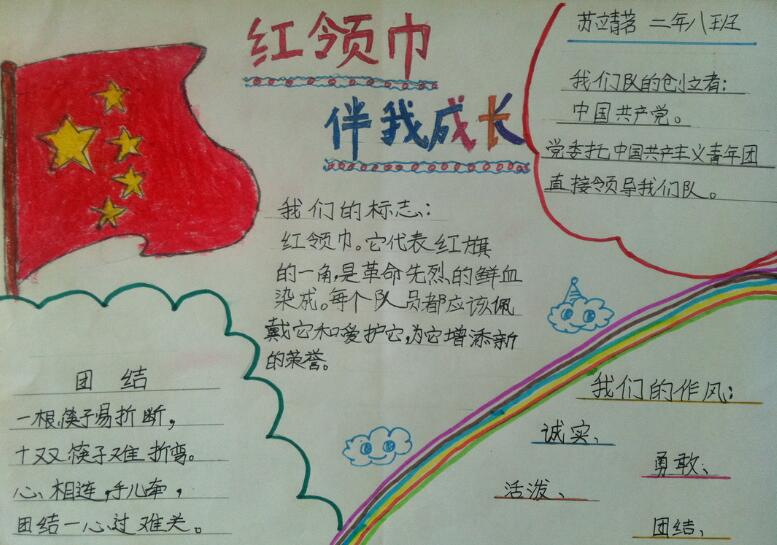 红领巾
伴我成长
苏靖茗 二年八班
我们队的创立者：
中国共产党。
党委托中国共产主义青年团
直接领导我们队。
我们的标志：
红领巾。它代表红旗
的一角，是革命先烈的鲜血
染成。每个队员都应该佩
戴它和爱护它，为它增添新
的荣誉。
团结
一根筷子易折断，
十双筷子难折弯。
心相连，手儿牵，
团结一心过难关。
我们的作风：
诚实、
勇敢、
活泼、
团结、